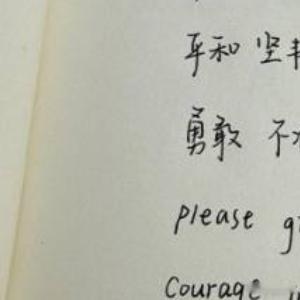 平和 坚
勇敢 不
please
Courage